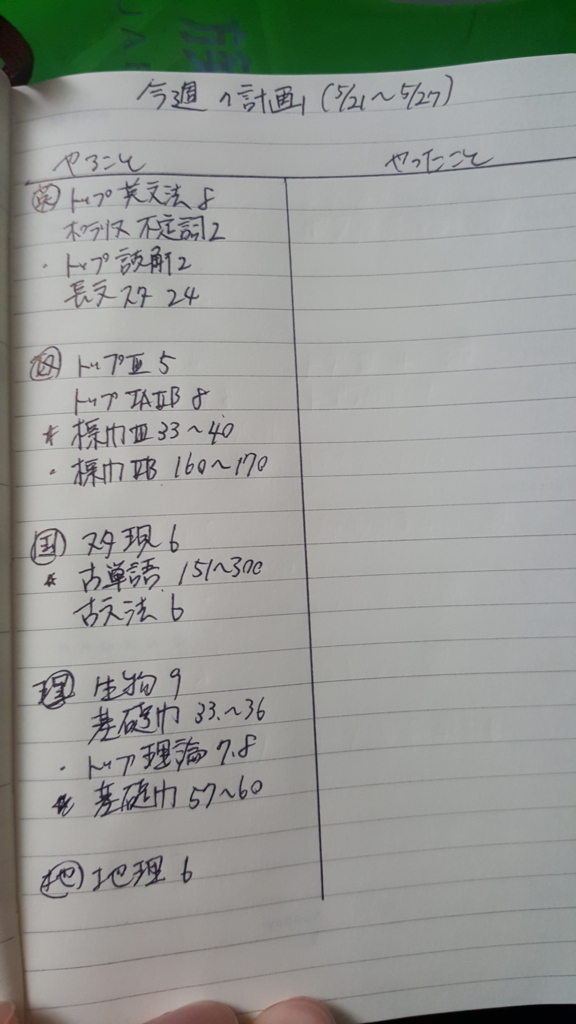 今週の計画 (5/21～5/27)
やること
やったこと
英 トップ英文法 8
ポラリス 不定詞 2
・トップ読解 2
長文スタ 24
数 トップⅢ 5
トップⅠAⅡB 8
★ 標問Ⅲ 33～40
・標問ⅡB 160～170
国 スタ現 6
★ 古単語 151～300
古文法 6
理 生物 9
基礎問 33～36
・トップ理論 7.8
★ 基礎問 57～60
地 地理 6